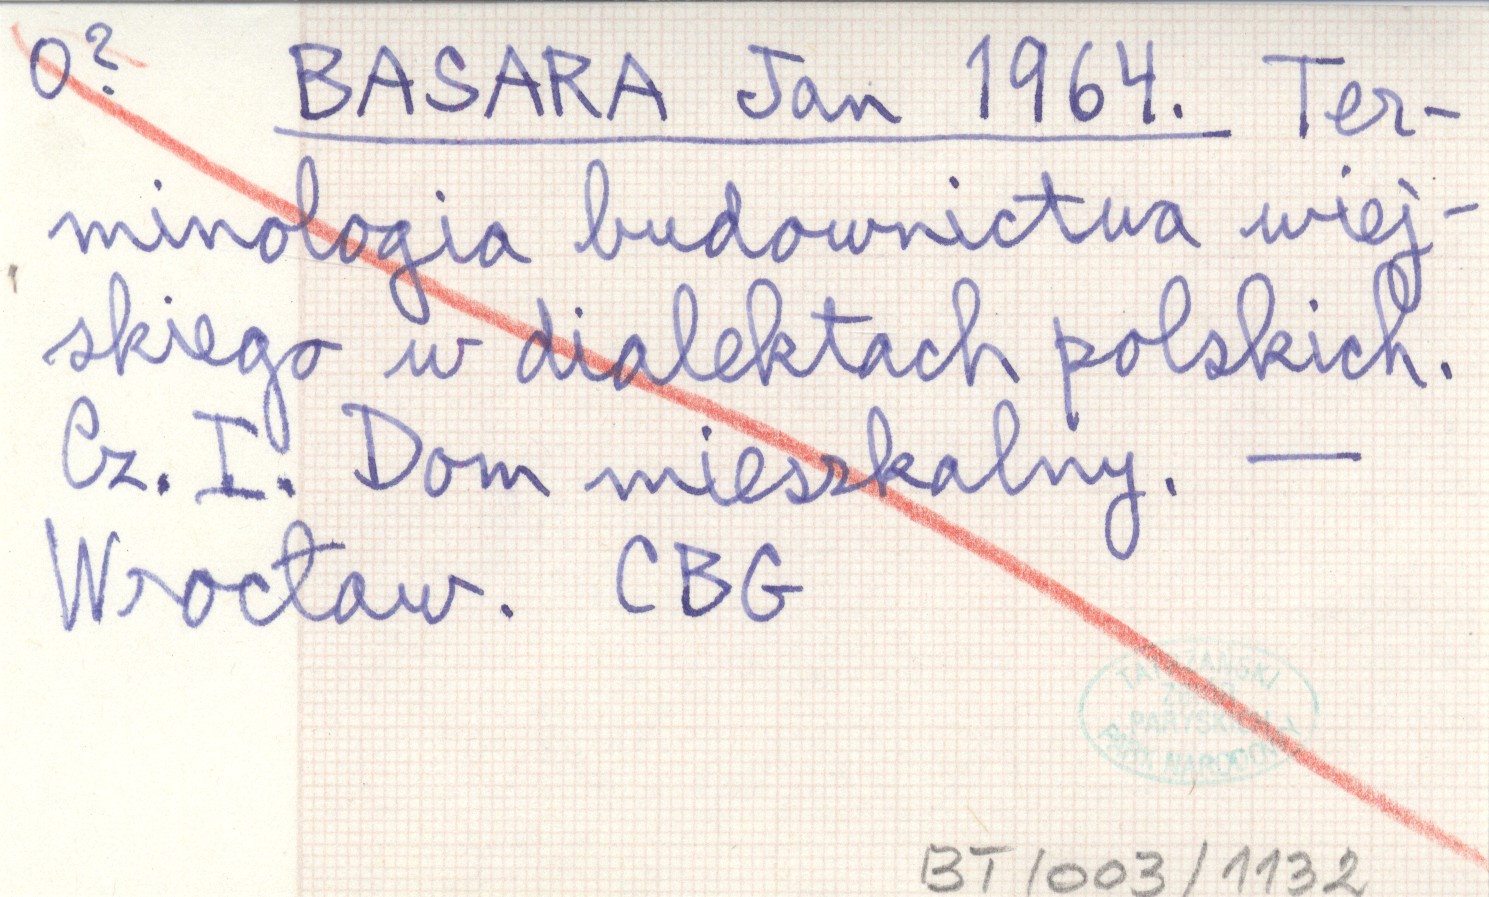 O? BASARA Jan 1964. Ter-
minologia budownictwa wiej-
skiego w dialektach polskich.
Cz. I. Dom mieszkalny. —
Wrocław. CBG
TATRZAŃSKI
PARYSKICH
PARK NARODOWY
BT/003/1132